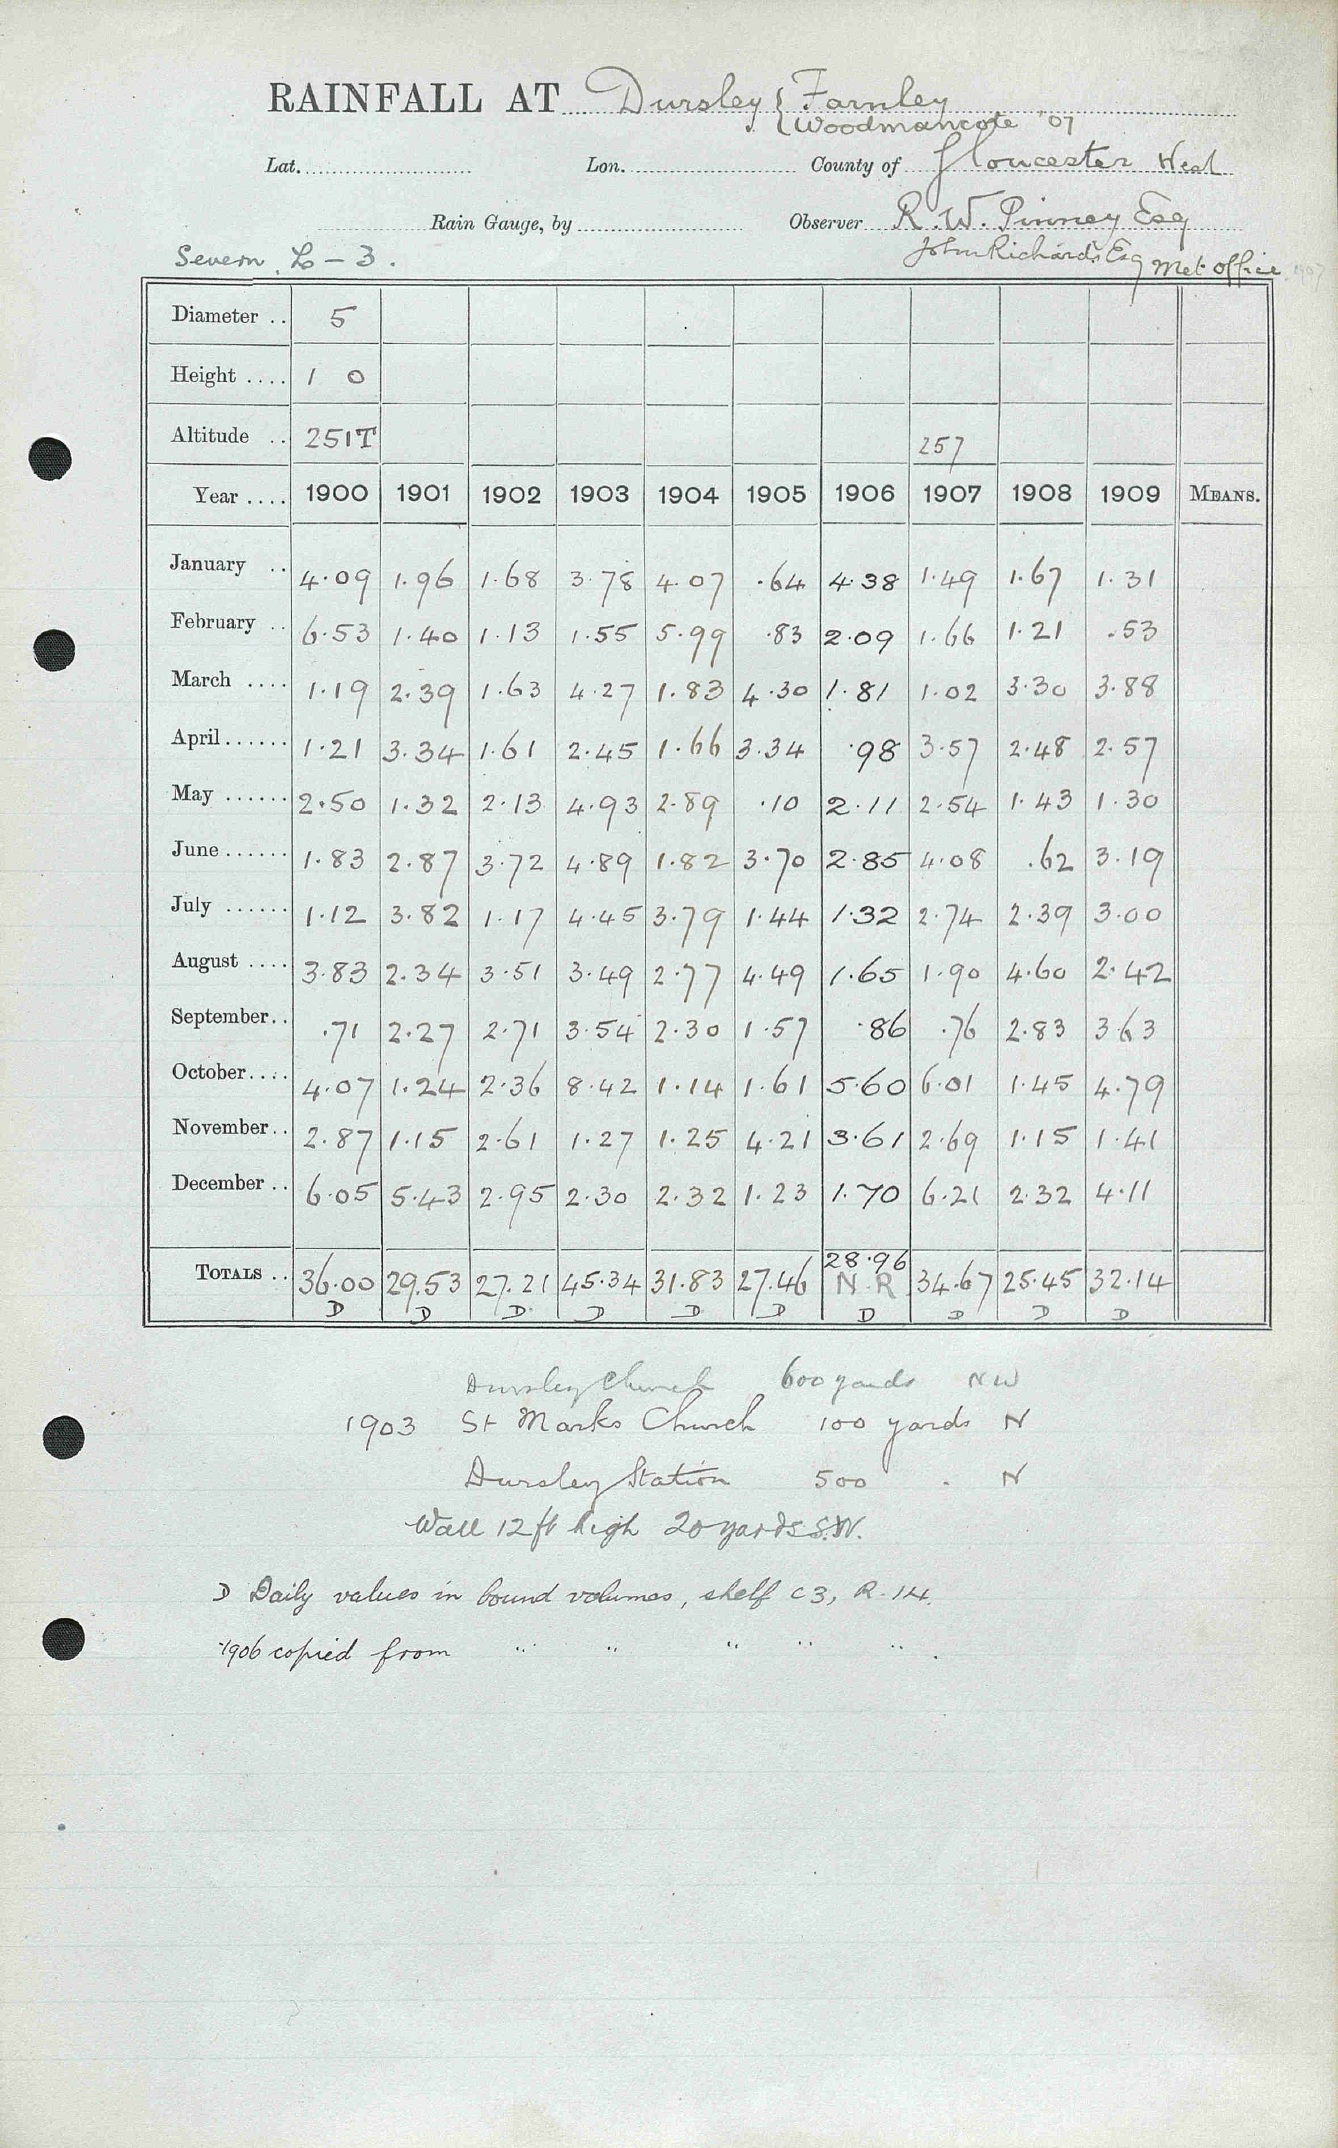 RAINFALL AT Dursley { Farnley
{ Woodmancote '07
Lat. Lon. County of Gloucester West
Rain Gauge, by Observer R. W. Pinney Esq
Severn L-3. John Richards Esq Met Office 1907
Diameter .. 5
Height .... 1 0
Altitude .. 251T 257
Year .... 1900 1901 1902 1903 1904 1905 1906 1907 1908 1909 MEANS.
January .. 4.09 1.96 1.68 3.78 4.07 .64 4.38 1.49 1.67 1.31
February .. 6.53 1.40 1.13 1.55 5.99 .83 2.09 1.66 1.21 .53
March .... 1.19 2.39 1.63 4.27 1.83 4.30 1.81 1.02 3.30 3.88
April...... 1.21 3.34 1.61 2.45 1.66 3.34 .98 3.57 2.48 2.57
May ...... 2.50 1.32 2.13 4.93 2.89 .10 2.11 2.54 1.43 1.30
June...... 1.83 2.87 3.72 4.89 1.82 3.70 2.85 4.08 .62 3.19
July ...... 1.12 3.82 1.17 4.45 3.79 1.44 1.32 2.74 2.39 3.00
August .... 3.83 2.34 3.51 3.49 2.77 4.49 1.65 1.90 4.60 2.42
September.. .71 2.27 2.71 3.54 2.30 1.57 .86 .76 2.83 3.63
October.... 4.07 1.24 2.36 8.42 1.14 1.61 5.60 6.01 1.45 4.79
November.. 2.87 1.15 2.61 1.27 1.25 4.21 3.61 2.69 1.15 1.41
December .. 6.05 5.43 2.95 2.30 2.32 1.23 1.70 6.21 2.32 4.11
28.96
TOTALS .. 36.00 29.53 27.21 45.34 31.83 27.46 N.R 34.67 25.45 32.14
D D D D D D D D D D
Dursley Church 600 yards NW
1903 St Marks Church 100 yards N
Dursley Station 500 . N
Wall 12 ft high 20 yards S.W.
D Daily values in bound volumes, shelf C3, R.14.
1906 copied from " " " " " .